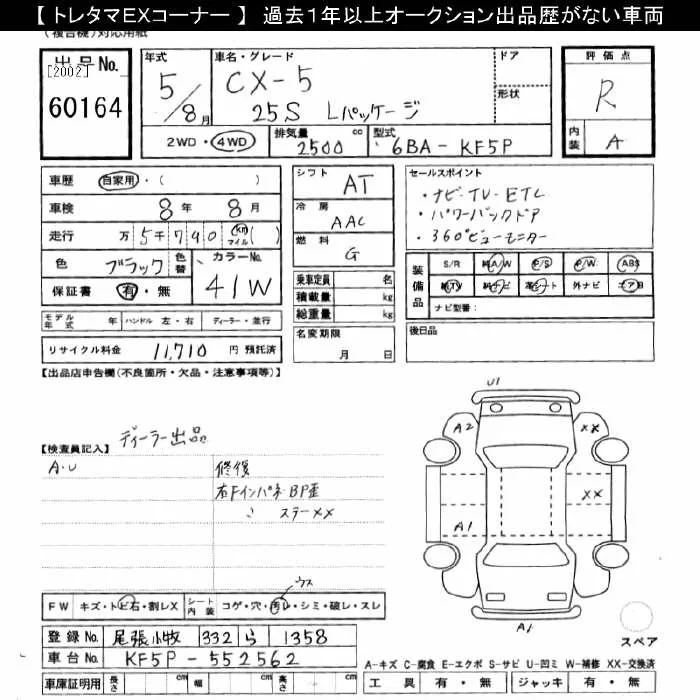 【 トレタマEXコーナー 】 過去1年以上オークション出品歴がない車両
(複合機)対応用紙
出品No.
[2002]
60164
年式
5/8月
車名・グレード
CX-5
25S Lパッケージ
ドア
形状
評価点
R
内装
A
2WD・4WD
排気量
2500 cc
型式
6BA-KF5P
車歴 自家用・( )
車検 8年 8月
走行 万 5千790 km マイル ( )
色 ブラック 色替
カラーNo.
41W
保証書 有・無
モデル年式 年 ハンドル 左・右 ディーラー・並行
リサイクル料金 11,710 円 預託済
シフト AT
冷房 AAC
燃料 G
乗車定員 名
積載量 kg
総重量 kg
名変期限
月 日
セールスポイント
・ナビ・TV・ETC
・パワーバックドア
・360°ビューモニター
装備品
S/R 純A/W P/S P/W ABS
純TV 純ナビ 革シート 外ナビ エアB
ナビ型番:
後日品
【出品店申告欄(不良箇所・欠品・注意事項等)】
ディーラー出品
【検査員記入】
A・U
修復
右Fインパネ BP歪
〃 ステーXX
U1
A2
XX
XX
A1
A1
スペア
ウス
FW キズ・トビ石・割レX
シート内装 コゲ・穴・汚レ・シミ・破レ・スレ
登録No. 尾張小牧 332 ら 1358
車台No. KF5P-552562
車庫証明用 長さ cm 幅 cm 高さ cm
A-キズ C-腐食 E-エクボ S-サビ U-凹ミ W-補修 XX-交換済
工具 有・無 ジャッキ 有・無